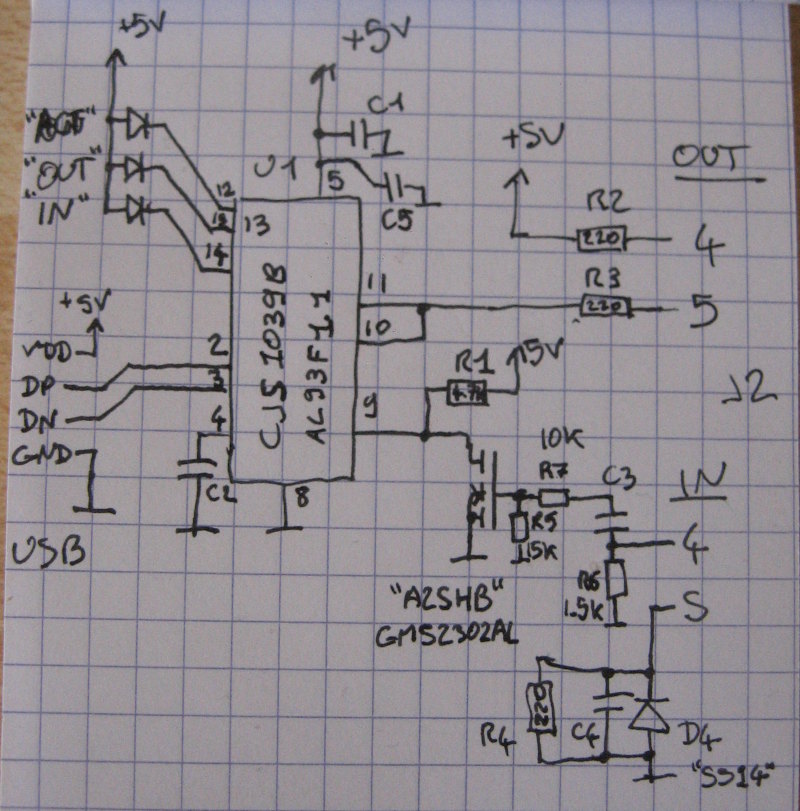 +5V
+5V
C1
"OUT"
U1
5
+5V
OUT
"IN"
12
13
C5
R2
14
220
4
11
R3
+5V
CJS1039B
AL93F1.1
220
5
VDD
2
10
5V
DP
3
R1
9
J2
DN
4
10K
GND
R7
C3
IN
C2
8
R5
15K
4
USB
R6
1.5K
"A2SHB"
GMS2302AL
5
220
R4
C4
D4
"SS14"